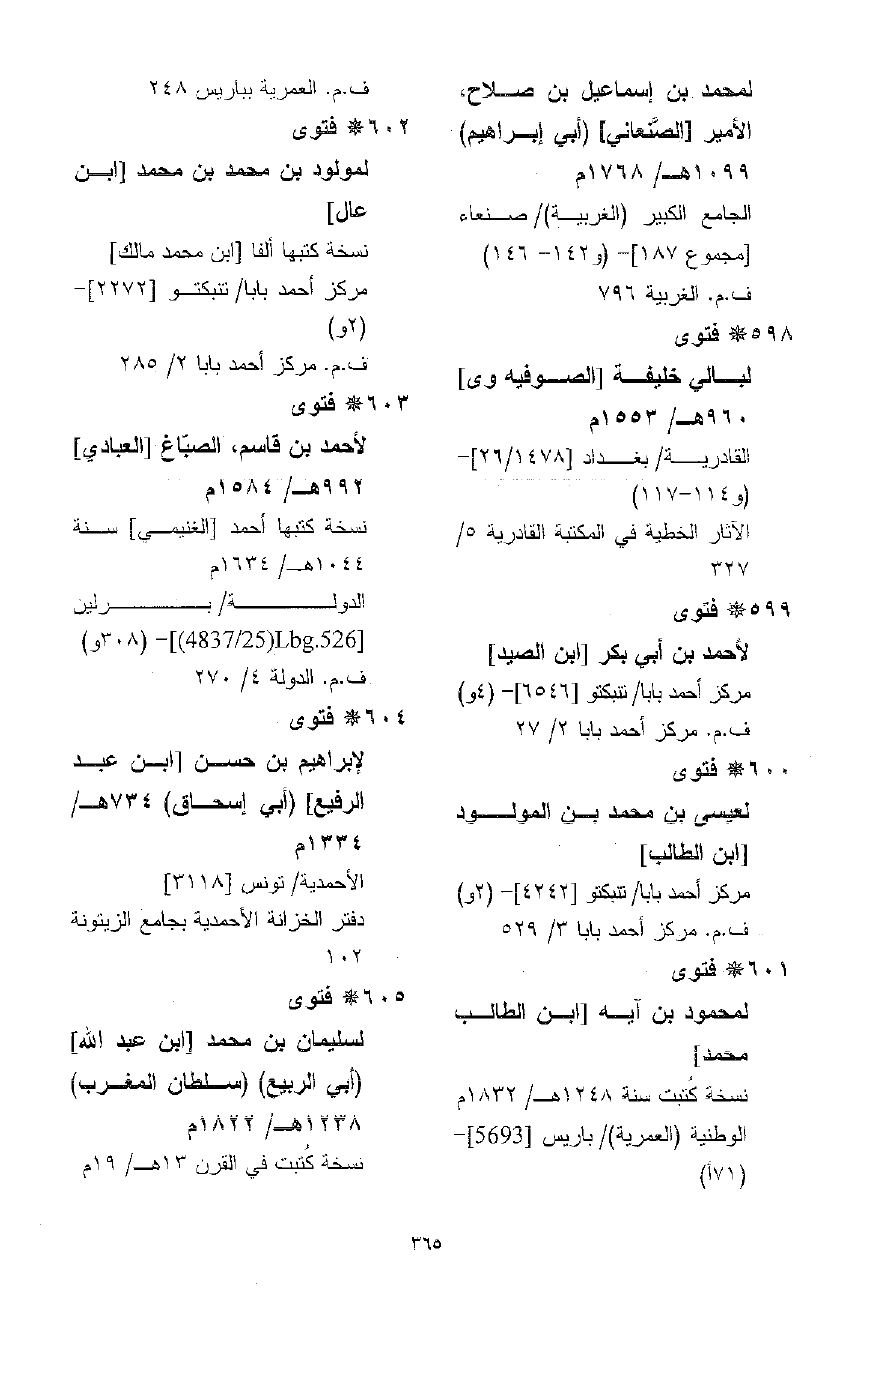 لمحمد بن إسماعيل بن صلاح،
الأمير [الصَّنعاني] (أبي إبراهيم)
١٠٩٩هـ/ ١٧٦٨م
الجامع الكبير (الغربية)/ صنعاء
[مجموع ١٨٧]- (و١٤٢- ١٤٦)
ف.م. الغربية ٧٩٦
٥٩٨* فتوى
لبالي خليفة [الصوفيه وى]
٩٦٠هـ/ ١٥٥٣م
القادرية/ بغداد [٢٦/١٤٧٨]-
(و١١٤-١١٧)
الآثار الخطية في المكتبة القادرية ٥/
٣٢٧
٥٩٩* فتوى
لأحمد بن أبي بكر [ابن الصيد]
مركز أحمد بابا/ تنبكتو [٦٥٤٦]- (٤و)
ف.م. مركز أحمد بابا ٢/ ٢٧
٦٠٠* فتوى
لعيسى بن محمد بن المولود
[ابن الطالب]
مركز أحمد بابا/ تنبكتو [٤٢٤٢]- (٢و)
ف.م. مركز أحمد بابا ٣/ ٥٢٩
٦٠١* فتوى
لمحمود بن آيه [ابن الطالب
محمد]
نسخة كُتبت سنة ١٢٤٨هـ/ ١٨٣٢م
الوطنية (العمرية)/ باريس [5693]-
(٧١أ)
ف.م. العمرية بباريس ٢٤٨
٦٠٢* فتوى
لمولود بن محمد بن محمد [ابن
عال]
نسخة كتبها ألفا [ابن محمد مالك]
مركز أحمد بابا/ تنبكتو [٢٢٧٢]-
(٢و)
ف.م. مركز أحمد بابا ٢/ ٢٨٥
٦٠٣* فتوى
لأحمد بن قاسم، الصبّاغ [العبادي]
٩٩٢هـ/ ١٥٨٤م
نسخة كتبها أحمد [الغنيمي] سنة
١٠٤٤هـ/ ١٦٣٤م
الدولة/ برلين
[Lbg.526(4837/25)]- (٣٠٨و)
ف.م. الدولة ٤/ ٢٧٠
٦٠٤* فتوى
لإبراهيم بن حسن [ابن عبد
الرفيع] (أبي إسحاق) ٧٣٤هـ/
١٣٣٤م
الأحمدية/ تونس [٣١١٨]
دفتر الخزانة الأحمدية بجامع الزيتونة
١٠٢
٦٠٥* فتوى
لسليمان بن محمد [ابن عبد الله]
(أبي الربيع) (سلطان المغرب)
١٢٣٨هـ/ ١٨٢٢م
نسخة كُتبت في القرن ١٣هـ/ ١٩م
٣٦٥